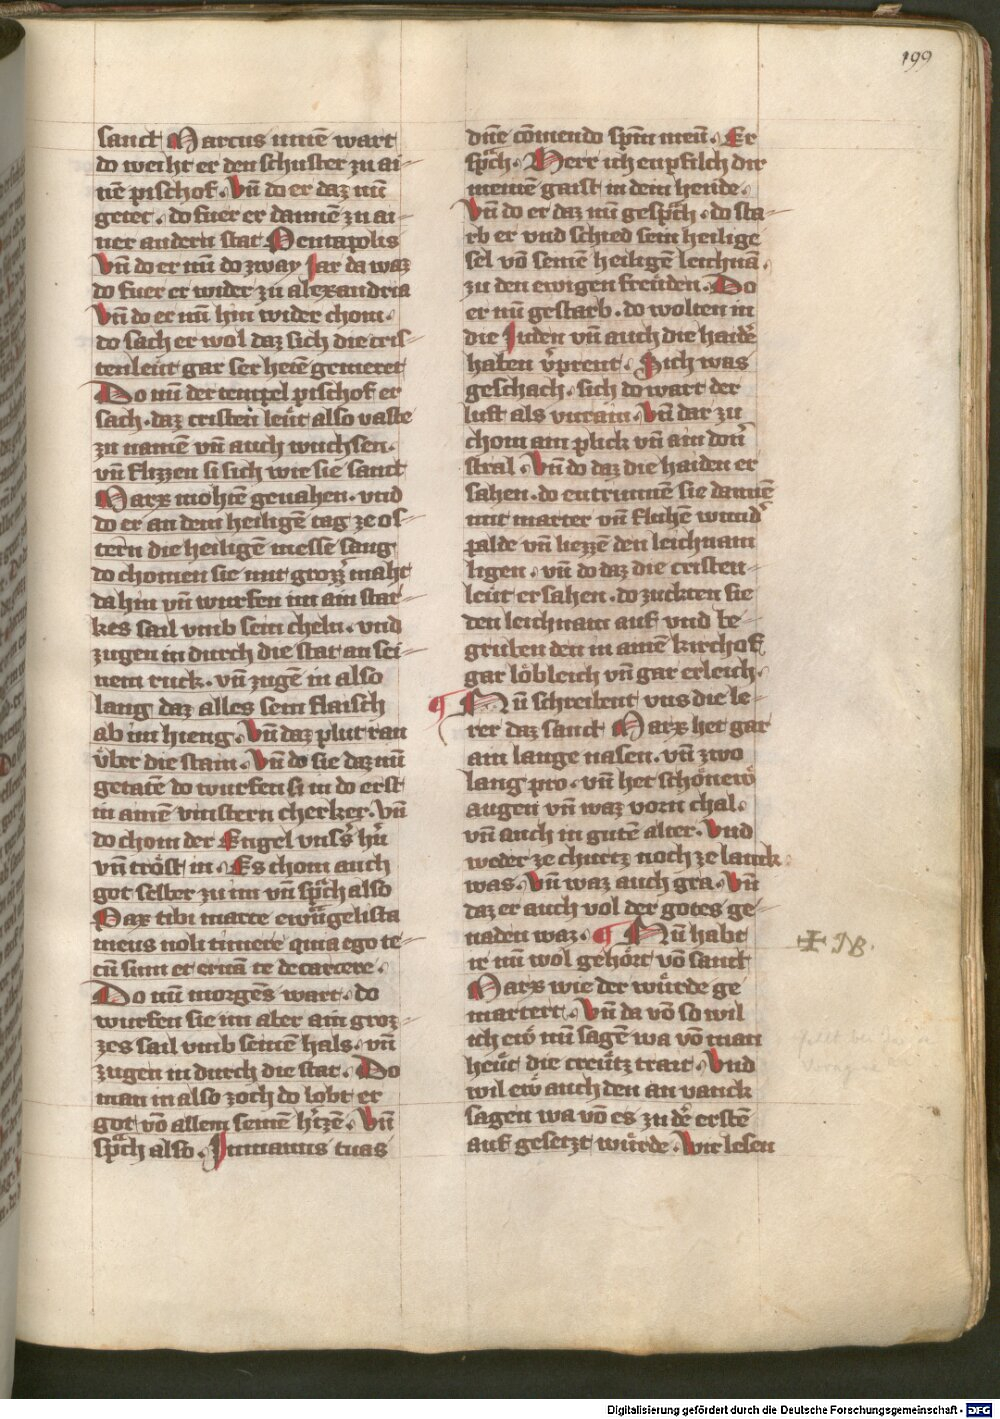 199
sanct Marcus innē wart
do weiht er den schuster zu ai-
nē pischof. Vn̄ do er daz nū
getet. do fuer er dannē zu ai-
ner andern stat Pentapolis
Vn̄ do er nū do zway Jar da waz
do fuer er wider zu alexandria
Vn̄ do er nū hin wider chom.
do sach er wol daz sich die cris-
tenleüt gar ser hetē gemeret
Do nū der tempel pischof er
sach. daz cristen leüt also vaste
zu namē vn̄ auch wuchsen.
vn̄ flizzen si sich wie sie sanct
Marx mohtē geuahen. vnd
do er an dem heiligē tag ze os-
tern die heiligē messe sang
do chomen sie mit grozz̄ maht
dahin vn̄ wurfen im ain star-
kes sail vmb sein cheln. vnd
zugen in durch die stat an sei-
nem ruck. vn̄ zugē in also
lang daz alles sein flaisch
ab im hieng. Vn̄ daz plut ran
über die stain. Vn̄ do sie daz nū
getatē do wurfen si in do erst
in ainē vinstern cherker. Vn̄
do chom der Engel vnss̄ hr̄
vn̄ tröst in. Es chom auch
got selber zu im vn̄ sprach also
Pax tibi marce ewangelista
meus noli timere quia ego te-
cū sum et eruā te de carcere.
Do nū morgēs wart. do
wurfen sie im aber ain groz-
zes sail vmb seinē hals. vn̄
zugen in durch die stat. Do
man in also zoch do lobt er
got vō allem seinē hr̄zē. Vn̄
sprach also. In manus tuas
dn̄e cōmendo spm̄ meū. Er
sprach. Herr ich enpfilch dir
meinē gaist in dein hende.
Vn̄ do er daz nū gesprach. do sta-
rb er vnd schied sein heilige
sel vō seinē heiligē leichnā.
zu den ewigen freüden. Do
er nū gestarb. do wolten in
die Juden vn̄ auch die haidē
haben v̄prent. Sich was
geschach. sich do wart der
luft als vnrain. Vn̄ dar zu
chom ain plick vn̄ ain donr̄
stral. Vn̄ do daz die haiden er
sahen. do entrunnē sie dannē
mit marter vn̄ fluhē wund̄
palde vn̄ liezzē den leichnam
ligen. vn̄ do daz die cristen-
leüt ersahen. do zuckten sie
den leichnam auf vnd be-
gruben den in ainē kirchof
gar löbleich vn̄ gar erleich.
¶ Nū schreibent vns die le-
rer daz sanct Marx het gar
ain lange nasen. vn̄ zwo
lang pro. vn̄ het schönew
augen vn̄ waz vorn chal.
vn̄ auch in gutē alter. Vnd
weder ze churtz noch ze lanck
was. Vn̄ waz auch gra. Vn̄
daz er auch vol der gotes ge-
naden waz. ¶ Nū habt
ir nū wol gehört vō sanct
Marx wie der würde ge
martert. Vn̄ da vō so wil
ich ew nū sagē wa vō man
heüt die creütz trait. Vnd
wil ew auch den an vanck
sagen wa vō es zu dē erstē
auf gesetzt würde. Wir lesen
NB.
Digitalisierung gefördert durch die Deutsche Forschungsgemeinschaft - DFG